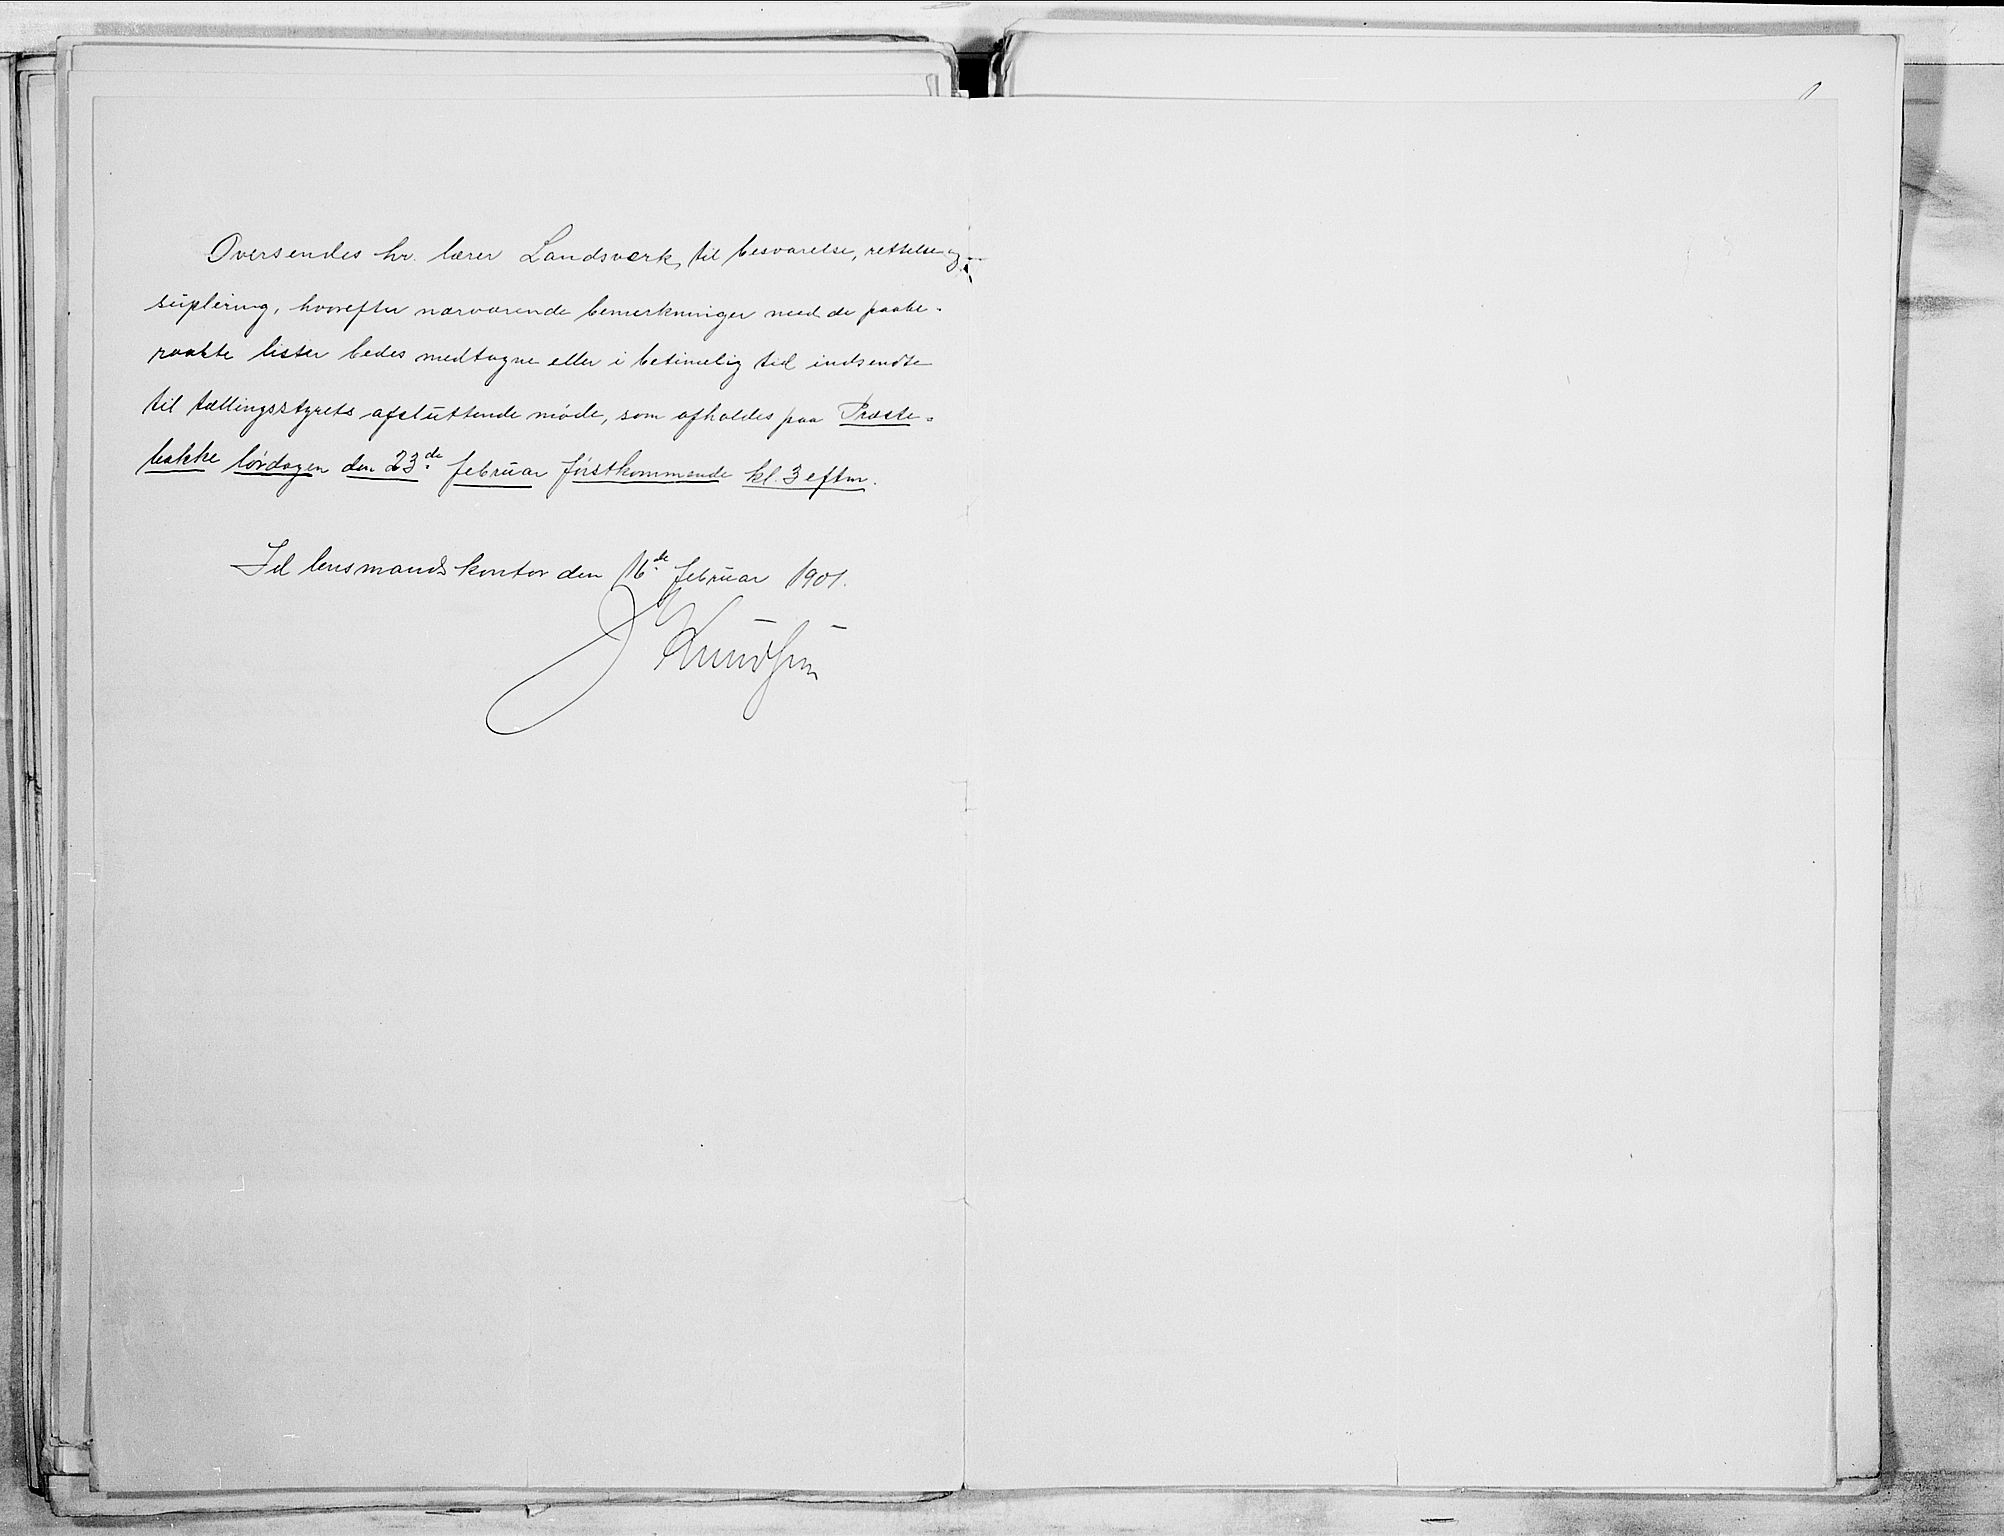 Oversendes hr. lærer Landsverk, til besvarelse, rettelse og
suplering, hvorefter nærværende bemerkninger med de paabe-
raabte lister bedes medtagne eller i betimelig tid indsendte
til tællingsstyrets afsluttende møde, som afholdes paa Præste-
bakke lørdagen den 23de februar førstkommende kl. 3 efterm.
Id lensmandskontor den 16de februar 1901.
J Knudsen